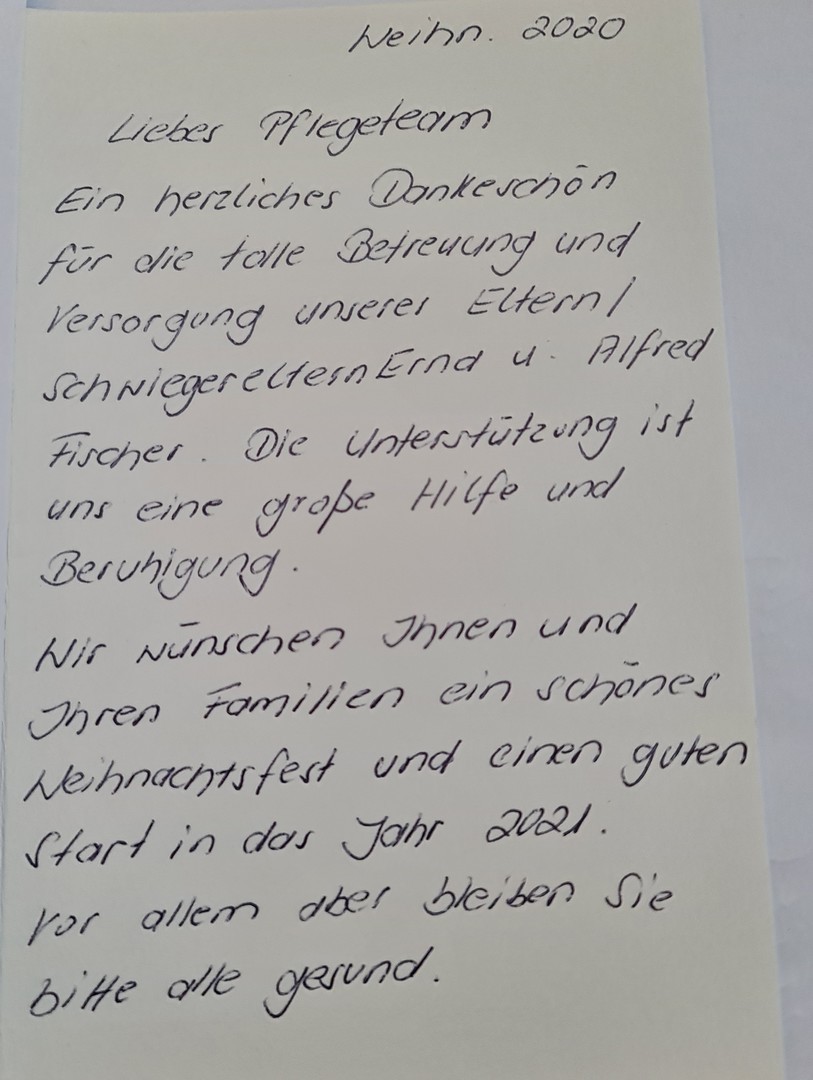 Weihn. 2020
Liebes Pflegeteam
Ein herzliches Dankeschön
für die tolle Betreuung und
Versorgung unserer Eltern/
Schwiegereltern Erna u. Alfred
Fischer. Die Unterstützung ist
uns eine große Hilfe und
Beruhigung.
Wir wünschen Ihnen und
Ihren Familien ein schönes
Weihnachtsfest und einen guten
Start in das Jahr 2021.
Vor allem aber bleiben Sie
bitte alle gesund.